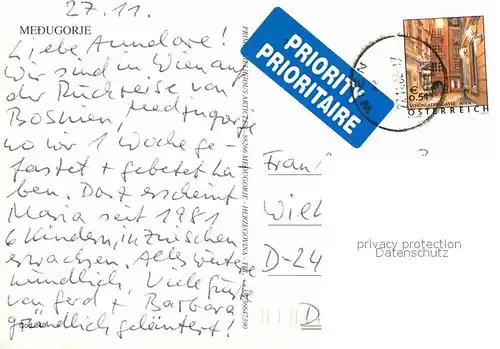 27.11.
MEĐUGORJE
Liebe Annelore!
Wir sind in Wien auf
der Rückreise von
Bosnien, Medzugorje
wo wir 1 Woche ge-
fastet + gebetet ha
ben. Dort erscheint
Maria seit 1981
6 Kindern, inzwischen
erwachsen. Alles weitere
mündlich. Viele Grüße
von Gerd + Barbara
gründlich geläutert!
88266 MEĐUGORJE - HERZEGOVINA
PRIORITY
PRIORITAIRE
€ 0,55
SCHÖNLATERNGASSE · WIEN
ÖSTERREICH
Frau
Wiel
D-24
D.
privacy protection
Datenschutz